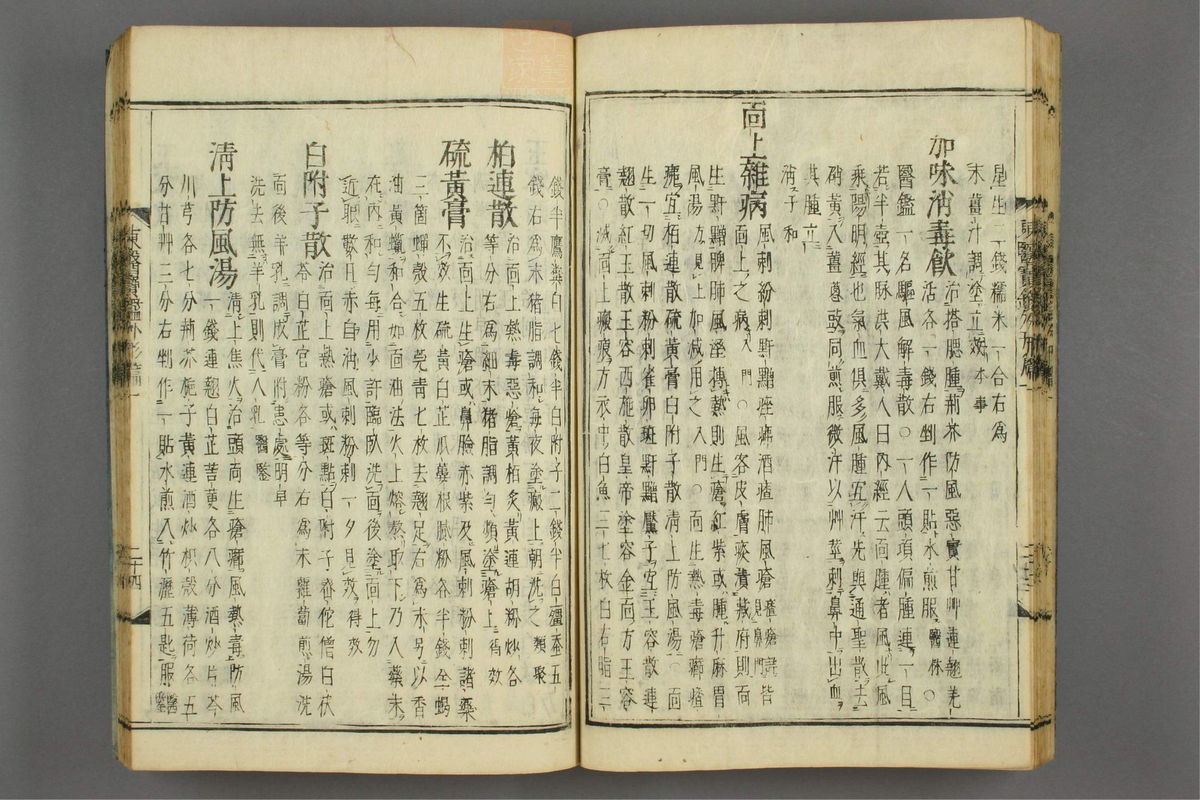 星生二錢糯米一合右為
末薑汁調塗立效 本事
加味消毒飮 治搭腮腫荊芥防風惡實甘艸連翹羌
活各一錢右剉作一貼水煎服 醫林 ○
醫鑑一名驅風解毒散○一人頭項偏腫連一目
若半壺其脉洪大戴人曰內經云面腫者風此風
乘陽明經也氣血俱多風腫宜汗先與通聖散去
硝黃入薑葱豉同煎服微汗以艸莖刺鼻中出血
其腫立
消 子和
面上雜病 風刺粉刺䵟䵳痤疿酒齄肺風瘡 齄瘡詳見鼻門 皆
面上之病 入門 ○風客皮膚痰漬藏府則面
生䵟䵳脾肺風濕搏熱則生瘡紅紫或腫升麻胃
風湯 方見上 加減用之 入門 ○面生熱毒瘡疿齄
疿宜柏連散硫黃膏白附子散淸上防風湯○面
生一切風刺粉刺雀卵斑䵟䵳黶子宜玉容散連
翹散紅玉散玉容西施散皇帝塗容金面方玉容
膏○滅面上瘢痕方衣中白魚二七枚白石脂三
東醫寶鑑外形篇一
二十三
錢半鷹糞白七錢半白附子二錢半白殭蚕五
錢右為末猪脂調和每夜塗瘢上朝洗之 類聚
柏連散 治面上熱毒惡瘡黃栢炙黃連胡粉炒各
等分右為細末猪脂調勻頻塗瘡上 得效
硫黃膏 治面上生瘡或鼻臉赤紫及風刺粉刺諸藥
不效生硫黃白芷瓜蔞根膩粉各半錢全蝎
三箇蟬殼五枚芫靑七枚去翹足右為末另以香
油黃蠟和合如面油法火上熔敖取下乃入藥末
在內和勻每用少許臨臥洗面後塗面上勿
近眼數日赤自消風刺粉刺一夕見效 得效
白附子散 治面上熱瘡或斑點白附子密佗僧白茯
苓白芷官粉各等分右為末蘿葍煎湯洗
面後羊乳調成膏附患處明早
洗去無羊乳則代人乳 醫鑒
淸上防風湯 淸上焦火治頭面生瘡癤風熱毒防風
一錢連翹白芷苦莄各八分酒炒片芩
川芎各七分荊芥梔子黃連酒炒枳殼薄荷各五
分甘艸三分右剉作一貼水煎入竹瀝五匙服 醫鑒
東醫寶鑑外形篇一
二十四